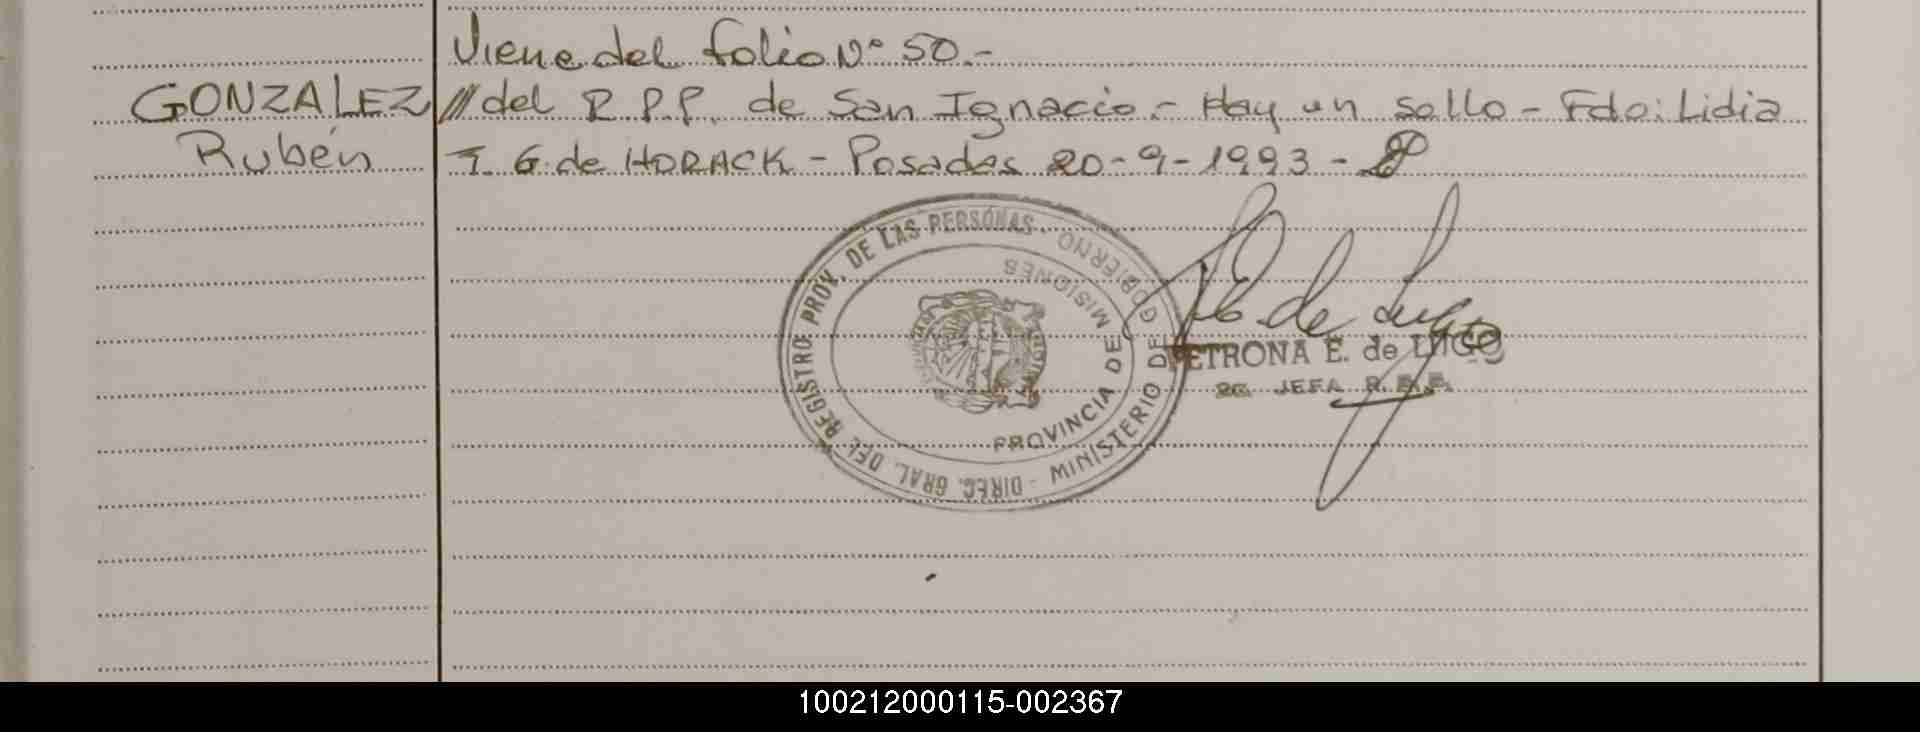 Viene del folio Nº 50.-
GONZALEZ /// del R.P.P. de San Ignacio.- Hay un sello - Fdo: Lidia
Rubén T. G. de HORACK - Posadas 20-9-1993 -
DIREC. GRAL. DEL REGISTRO PROV. DE LAS PERSONAS -
MINISTERIO DE GOBIERNO
PROVINCIA DE MISIONES
PETRONA E. de LUGO
JEFA
100212000115-002367